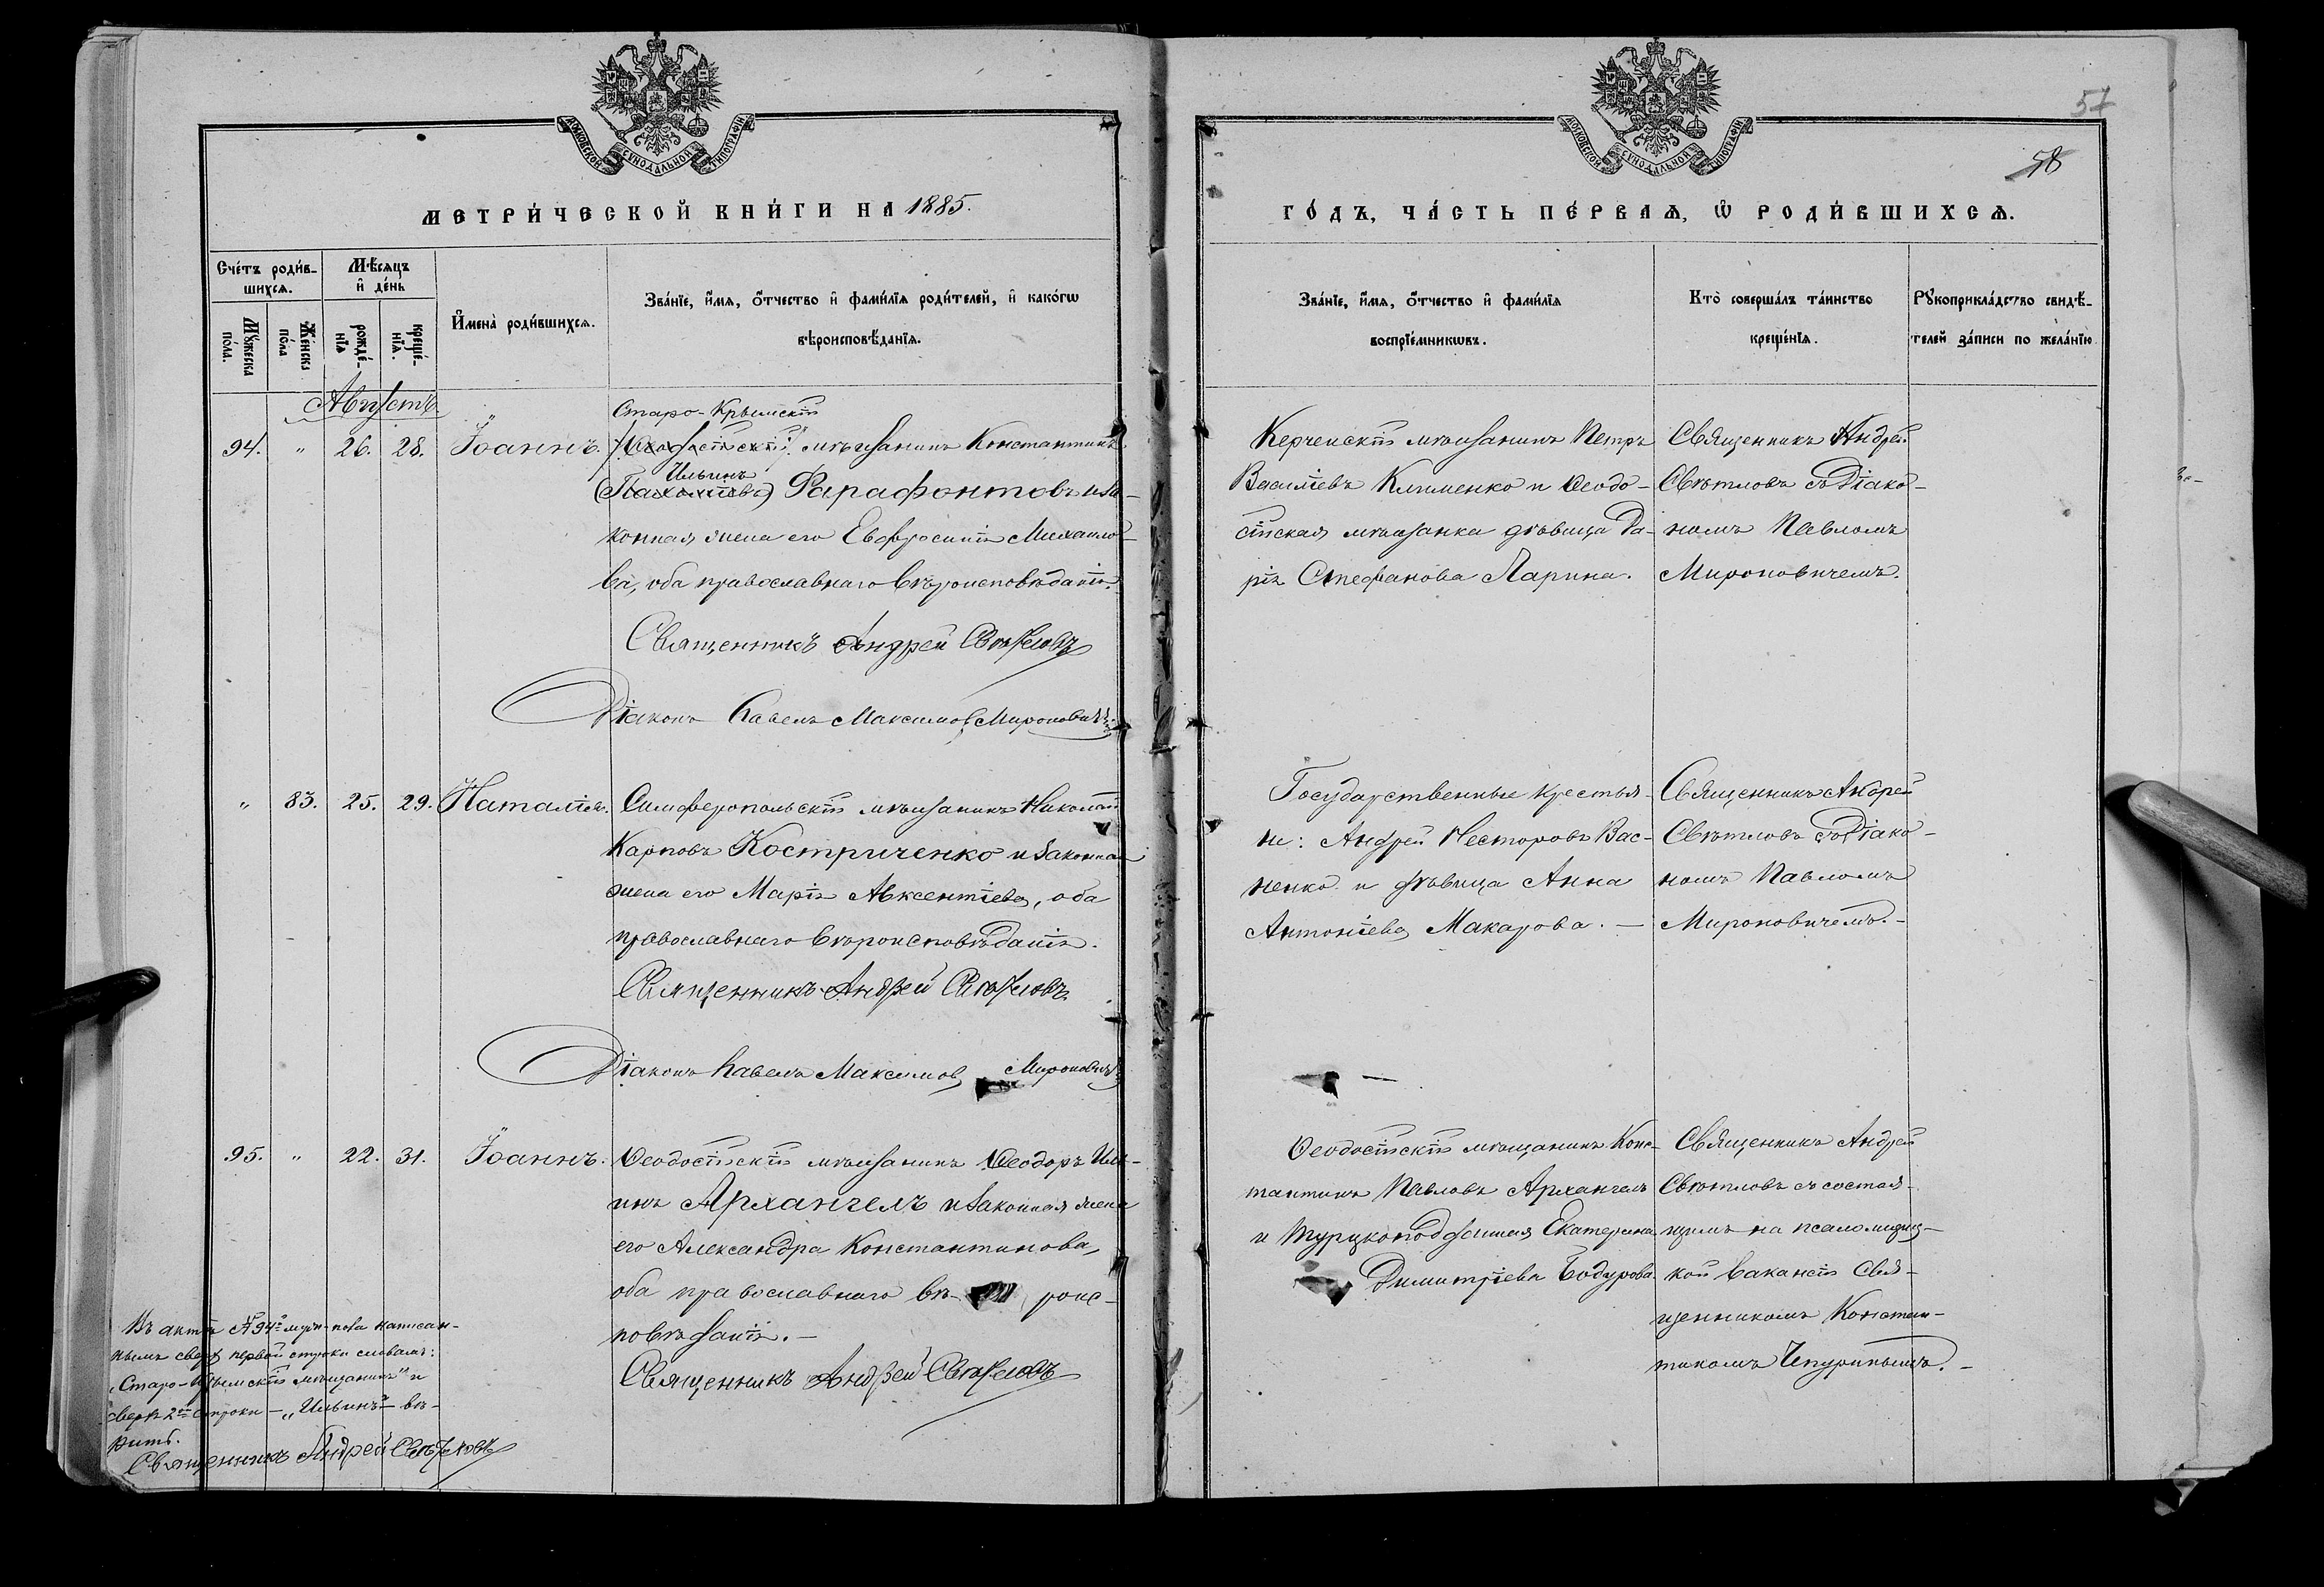 МОСКОВСКОЙ СѴНОДАЛЬНОЙ ТИПОГРАФІИ
МЕТРИ́ЧЕСКОЙ КНИ́ГИ НА 1885.
Сче́тъ роди́в-
шихсѧ.
Мѣ́сѧцъ
и҆ де́нь
Мꙋ́жеска
по́ла.
Же́нска
по́ла
рожде́-
нїѧ
креще́-
нїѧ.
И҆мена̀ роди́вшихсѧ.
Зва́нїе, и҆́мѧ, ѻ҆́тчество и҆ фами́лїѧ роди́телей, и҆ како́гѡ
вѣроисповѣ́данїѧ.
Августъ
94. " 26. 28. Іоаннъ.
Старо-Крымскій
(Ѳеодосійскій) мѣщанинъ Константинъ
Ильинъ
(Пахоміевъ) Фарафонтовъ и за-
конная жена его Евфросинія Михаило-
ва, оба православнаго вѣроисповѣданія.
Священникъ Андрей Свѣтловъ
Діаконъ Павелъ Максимов. Мироновичъ.
" 83. 25. 29. Наталія.
Симферопольскій мѣщанинъ Николай
Карповъ Костриченко и законная
жена его Марія Авксентіева, оба
православнаго вѣроисповѣданія.
Священникъ Андрей Свѣтловъ.
Діаконъ Павелъ Максимов. Мироновичъ
95. " 22. 31. Іоаннъ.
Ѳеодосійскій мѣщанинъ Ѳеодоръ Иль-
инъ Архангелъ и законная жена
его Александра Константинова,
оба православнаго вѣ- роис-
повѣданія. —
Священникъ Андрей Свѣтловъ
Въ актѣ № 94º муж. пола написан-
нымъ сверхъ первой строки словамъ:
"Старо-Крымскій мѣщанинъ" и
сверхъ 2ой строки — "Ильинъ" — вѣ-
рить.
Священникъ Андрей Свѣтловъ
57
58
МОСКОВСКОЙ СѴНОДАЛЬНОЙ ТИПОГРАФІИ
ГО́ДЪ, ЧА́СТЬ ПЕ́РВАѦ, Ѽ РОДИ́ВШИХСѦ.
Зва́нїе, и҆́мѧ, ѻ҆́тчество и҆ фами́лїѧ
воспрїе́мникѡвъ.
Кто̀ соверша́лъ та́инство
креще́нїѧ.
Рꙋкоприкла́дство свидѣ́-
телей за́писи по жела́нїю
Керченскій мѣщанинъ Петръ
Василіевъ Клименко и Ѳеодо-
сійская мѣщанка дѣвица Да-
рія Стефанова Ларина.
Священникъ Андрей
Свѣтловъ съ Діако-
номъ Павломъ
Мироновичемъ.
Государственные крестья-
не: Андрей Несторовъ Вас-
ненко и дѣвица Анна
Антоніева Макарова. —
Священникъ Андрей
Свѣтловъ съ Діако-
номъ Павломъ
Мироновичемъ. —
Ѳеодосійскій мѣщанинъ Конс-
тантинъ Павловъ Архангелъ
и турецкоподданная Екатерина
Димитріева Бодурова.
Священникъ Андрей
Свѣтловъ съ состоя-
щимъ на псаломщиц-
кой вакансіи Свя-
щенникомъ Констан-
тиномъ Чепуринымъ. —